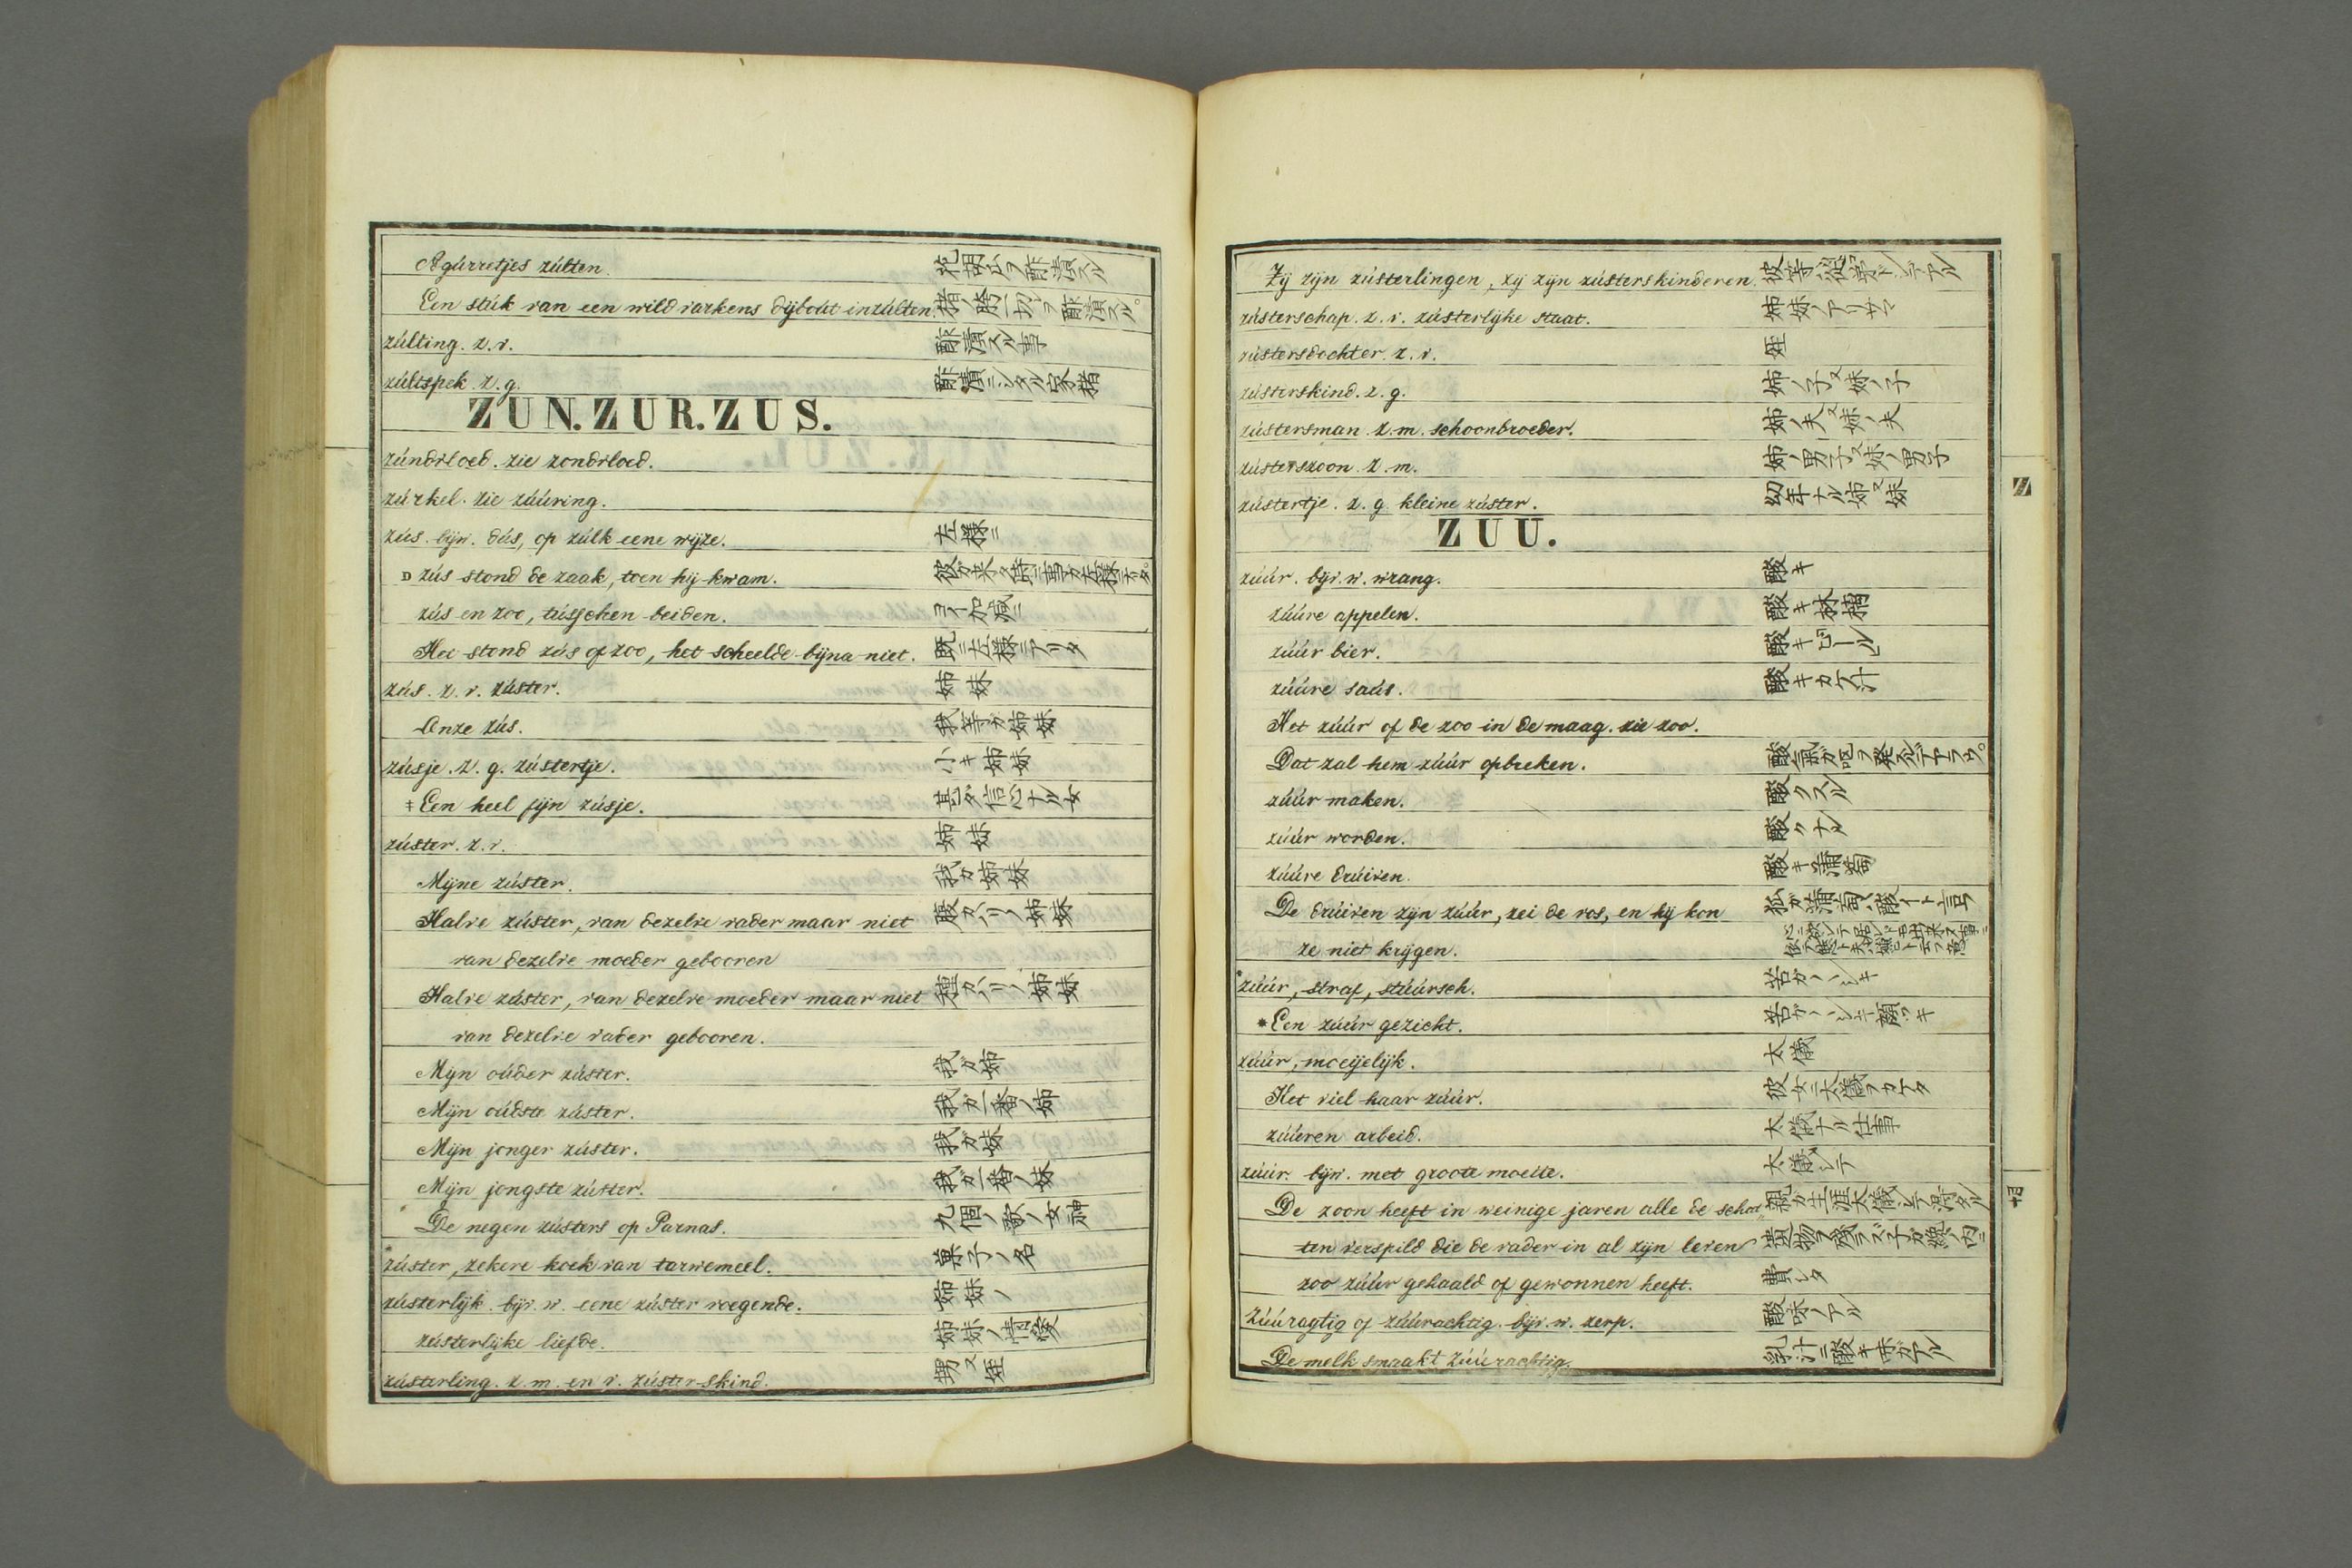 Agúrretjes zúlten.
Een stúk van een wild varkens dijboút inzúlten.
zúlting. z.v. 酢漬スル事
zúltspek. z.g. 酢漬ニシタル家猪
ZUN. ZUR. ZUS.
zúndvloed. zie zondvloed.
zúrkel. zie zúúring.
zús. bijw. dús, op zúlk eene wijze. 左様ニ
D zús stond de zaak, toen hij kwam.
zús en zoo, tússchen beiden. ヨイ加減ニ
Het stond zús of zoo, het scheelde bijna niet. 既ニ左様ニアリタ
zús. z.v. zúster. 姉妹
Onze zús. 我等ガ姉妹
zúsje. z.g. zústertje. 小キ姉妹
‡ Een heel fijn zúsje. 甚ダ信心ナル女
zúster. z.v. 姉妹
Mijne zúster. 我ガ姉妹
Halve zúster, van dezelve vader maar niet 腹ガハリノ姉妹
van dezelve moeder gebooren
Halve zúster, van dezelve moeder maar niet 種ガハリノ姉妹
van dezelve vader gebooren.
Mijn oúder zúster. 我ガ姉
Mijn oúdste zúster. 我ガ一番ノ姉
Mijn jonger zúster. 我ガ妹
Mijn jongste zúster. 我ガ一番ノ妹
De negen zústers op Parnas. 九個ノ歌ノ女神
zúster, zekere koek van tarwemeel. 菓子ノ名
zústerlijk. bijv. w. eene zúster voegende. 姉妹ノ
zústerlijke liefde. 姉妹ノ情愛
zústerling. z.m. en v. zúster-skind. 甥又姪
Zij zijn zústerlingen, zij zijn zústerskinderen.
zústerschap. z.v. zústerlijke staat. 姉妹ノアリサマ
zústersdochter. z.v. 姪
zústerskind. z.g. 姉ノ子又妹ノ子
zústersman. z.m. schoonbroeder. 姉ノ夫又妹ノ夫
zústerszoon. z.m. 姉ノ男子又妹ノ男子
zústertje. z.g. kleine zúster. 幼年ナル姉又妹
Z
ZUU.
zúúr. bijv. w. wrang. 酸キ
zúúre appelen. 酸キ林檎
zúúr bier. 酸キビール
zúúre saús. 酸キカケ汁
Het zúúr of de zoo in de maag. zie zoo.
Dat zal hem zúúr opbreken.
zúúr maken. 酸クスル
zúúr worden. 酸クナル
zúúre drúiven. 酸キ蒲萄
De drúiven zijn zúúr, zei de vos, en hij kon
ze niet krijgen.
zúúr, straf, stúúrsch. 苦ガ〱シキ
* Een zúúr gezicht. 苦ガ〱シキ顔ツキ
zúúr, moeijelijk. 太儀
Het viel haar zúúr. 彼女ニ太儀ヲカケタ
zúúren arbeid. 太儀ナル仕事
zúúr. bijw. met groote moeite. 太儀シテ
De zoon heeft in weinige jaren alle de schat„ 親ガ生涯太儀シテ得タル
ten verspild die de vader in al zijn leven
zoo zúúr gehaald of gewonnen heeft. 費シタ
Zúúragtig of zúúrachtig. bijv. w. zerp. 酸味ノアル
De melk smaakt Zúúrachtig. 乳汁ニ酸キ味ガアル